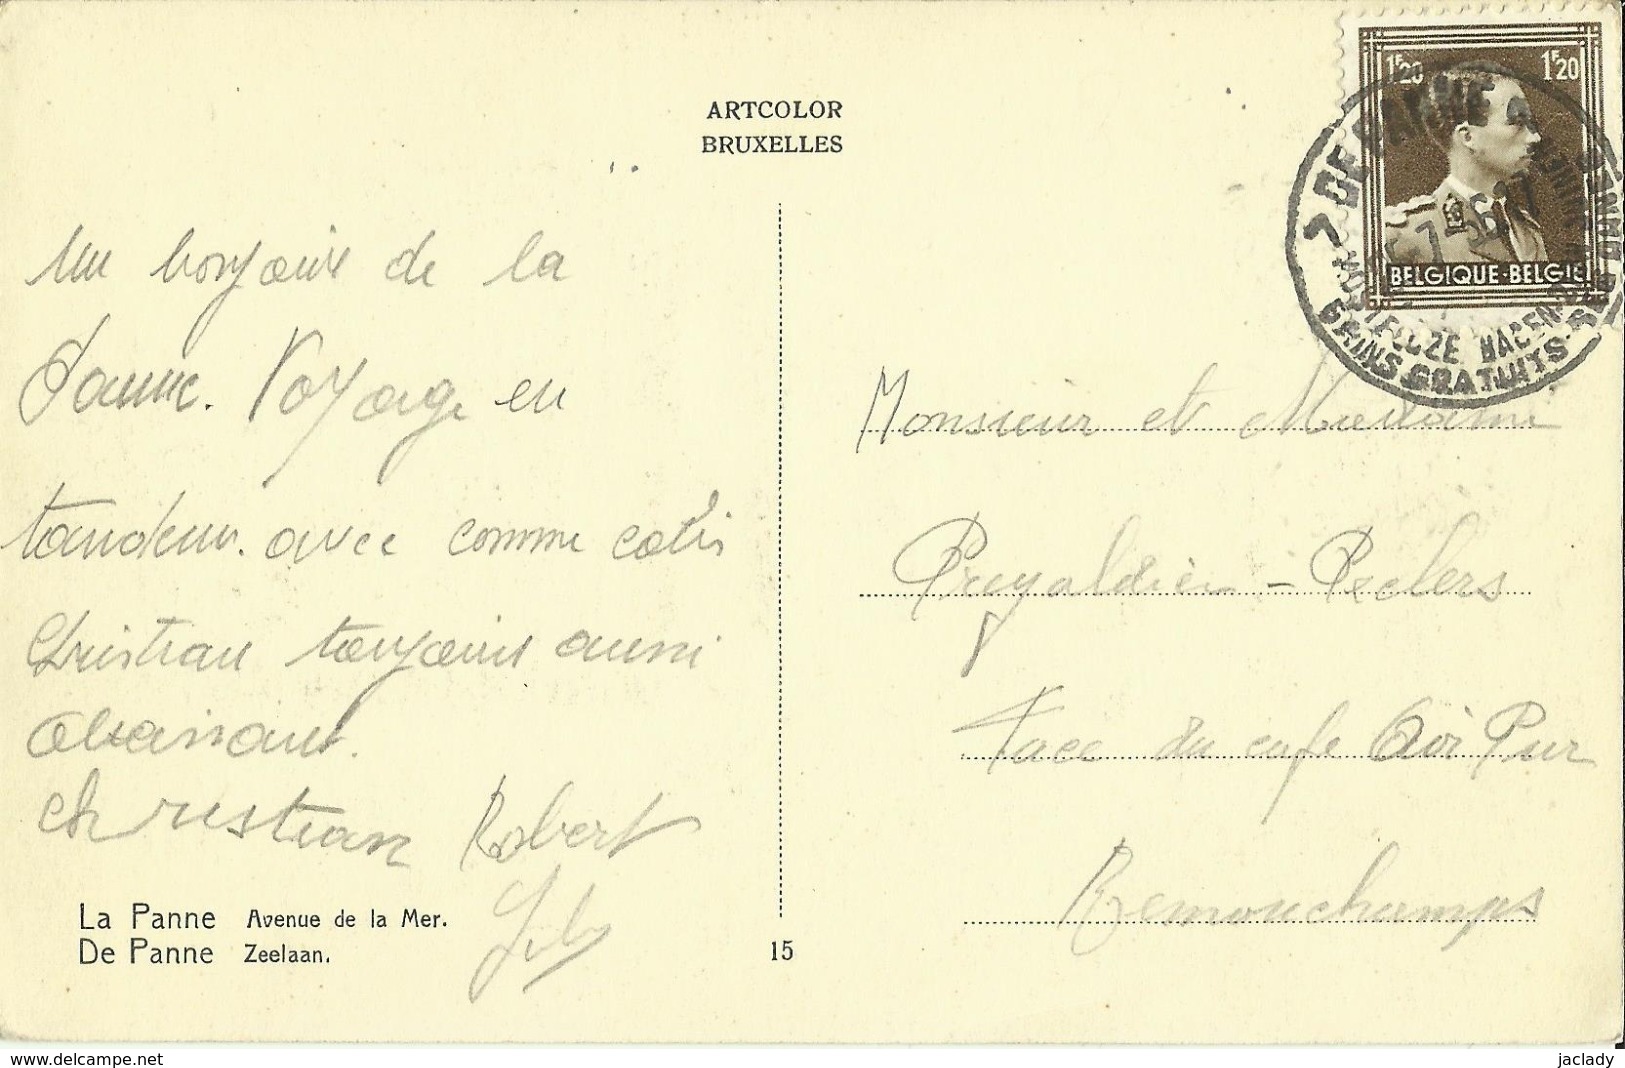 ARTCOLOR
BRUXELLES
un bonjour de la
Panne. Voyage en
tandem. avec comme colis
Christian toujours aussi
Christian Robert
La Panne Avenue de la Mer.
De Panne Zeelaan.
15
1F20 1F20
BELGIQUE-BELGIE
DE PANNE
KOSTELOZE BADEN
BAINS GRATUITS
Monsieur et Madame
- Peclers
Face du café Air Pur
Remouchamps
https://www.delcampe.net
jaclady